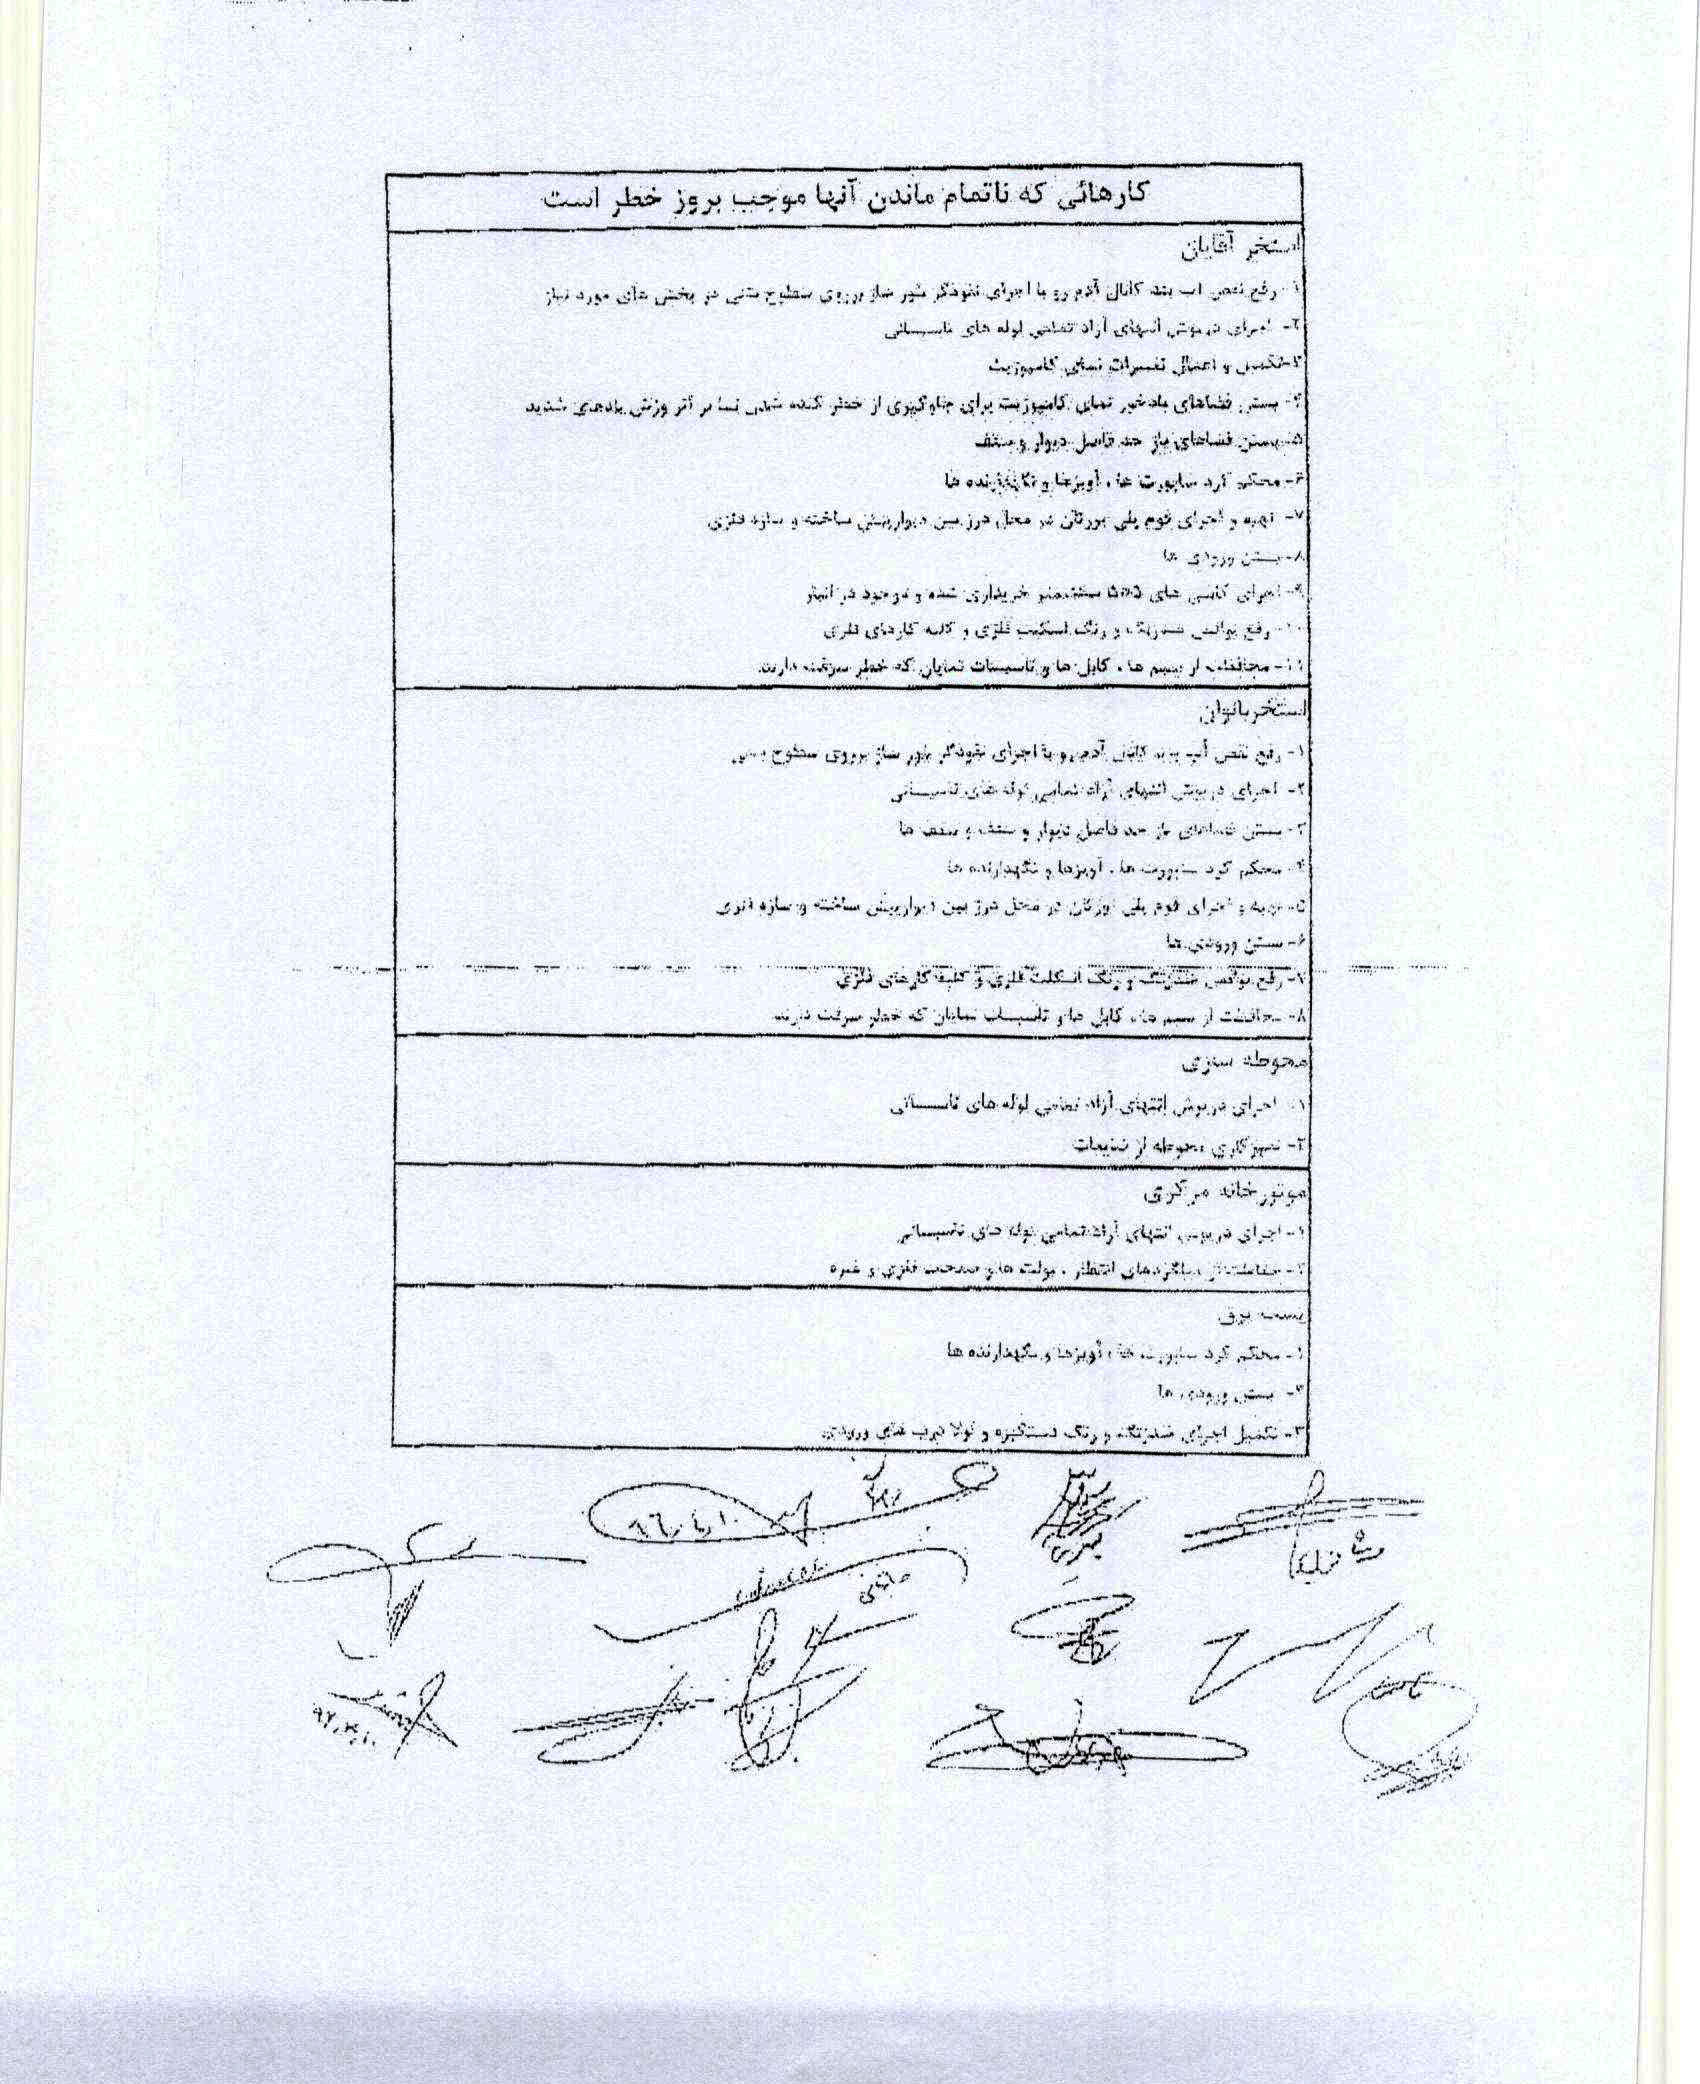 کارهائی که ناتمام ماندن آنها موجب بروز خطر است
استخر آقایان
۱- رفع نقص آب بند کانال آدم رو با اجرای نفوذگر بلور ساز برروی سطوح بتنی در بخش های مورد نیاز
۲- اجرای درپوش انتهای آزاد تمامی لوله های تاسیساتی
۳-تکمیل و اعمال تغییرات نمای کامپوزیت
۴- بستن فضاهای بادخیر نمای کامپوزیت برای جلوگیری از خطر کنده شدن نما بر اثر وزش بادهای شدید
۵-بستن فضاهای باز حد فاصل دیوار و سقف
۶- محکم کرد ساپورت ها ، آویزها و نگهدارنده ها
۷- تهیه و اجرای فوم پلی یورتان در محل درز بین دیوارپیش ساخته و سازه فلزی
۸-بستن ورودی ها
۹- اجرای کاشی های ۵*۵ سانتیمتر خریداری شده و موجود در انبار
۱۰- رفع نواقص ضدزنگ و رنگ اسکلت فلزی و کلیه کارهای فلزی
۱۱- محافظت از سیم ها ، کابل ها و تاسیسات نمایان که خطر سرقت دارند
استخربانوان
۱- رفع نقص آب بند کانال آدم رو با اجرای نفوذگر بلور ساز برروی سطوح بتنی
۲- اجرای درپوش انتهای آزاد تمامی لوله های تاسیساتی
۳- بستن فضاهای باز حد فاصل دیوار و سقف و سقف ها
۴- محکم کرد ساپورت ها ، آویزها و نگهدارنده ها
۵- تهیه و اجرای فوم پلی یورتان در محل درز بین دیوارپیش ساخته و سازه فلزی
۶- بستن ورودی ها
۷- رفع نواقص ضدزنگ و رنگ اسکلت فلزی و کلیه کارهای فلزی
۸- محافظت از سیم ها ، کابل ها و تاسیسات نمایان که خطر سرقت دارند
محوطه سازی
۱- اجرای درپوش انتهای آزاد تمامی لوله های تاسیساتی
۲- تمیزکاری محوطه از ضایعات
موتورخانه مرکزی
۱- اجرای درپوش انتهای آزاد تمامی لوله های تاسیساتی
۲- حفاظت از میلگردهای انتظار ، بولت ها و صفحات فلزی و غیره
پست برق
۱- محکم کرد ساپورت ها ، آویزها و نگهدارنده ها
۲- بستن ورودی ها
۳- تکمیل اجرای ضدزنگ و رنگ دستگیره و لولا درب های ورودی